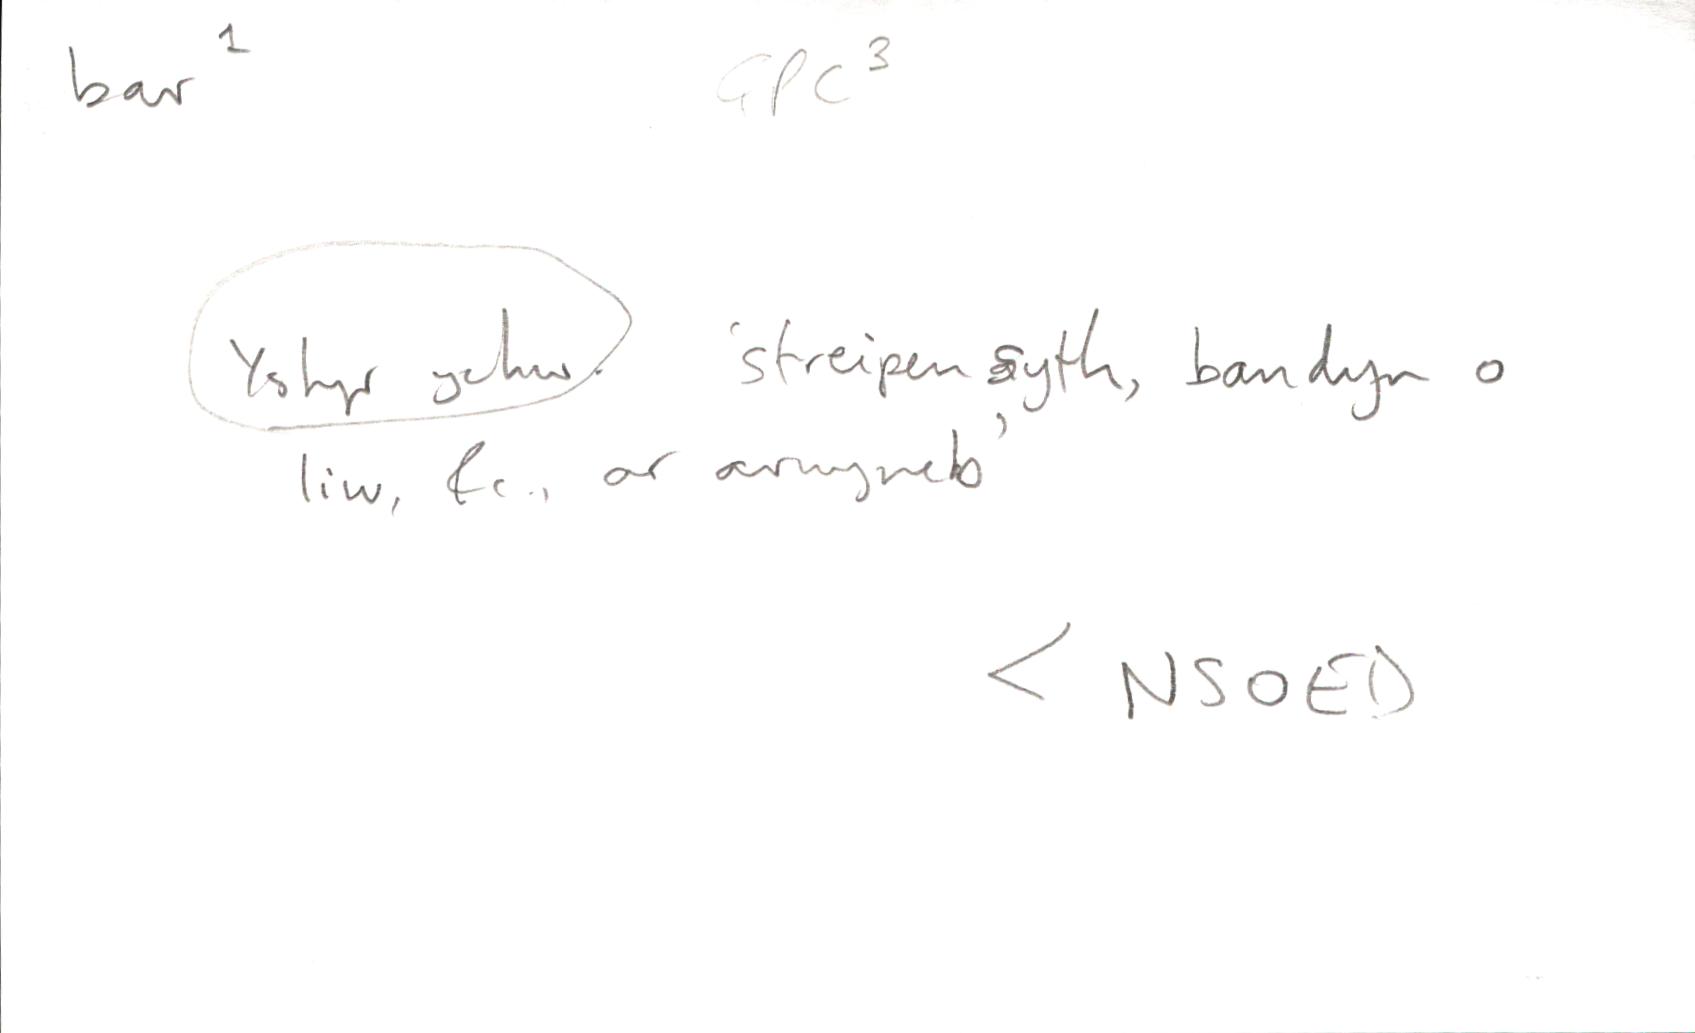 bar¹ GPC³
Ystyr ychw. 'streipen syth, bandyn o
liw, &c., ar arwyneb'
< NSOED